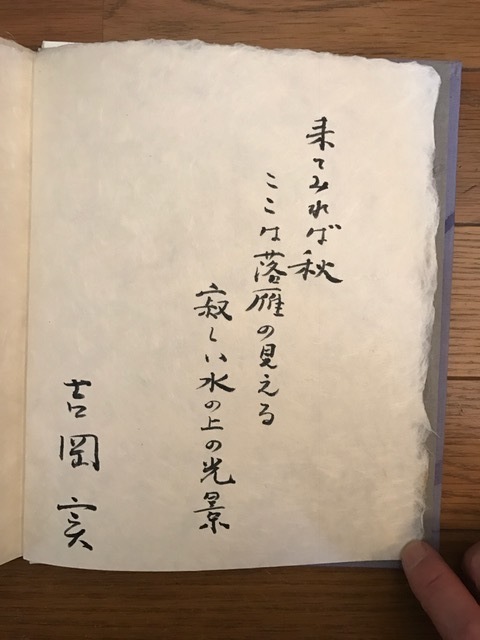 来てみれば秋
ここは落雁の見える
寂しい水の上の光景
吉岡実